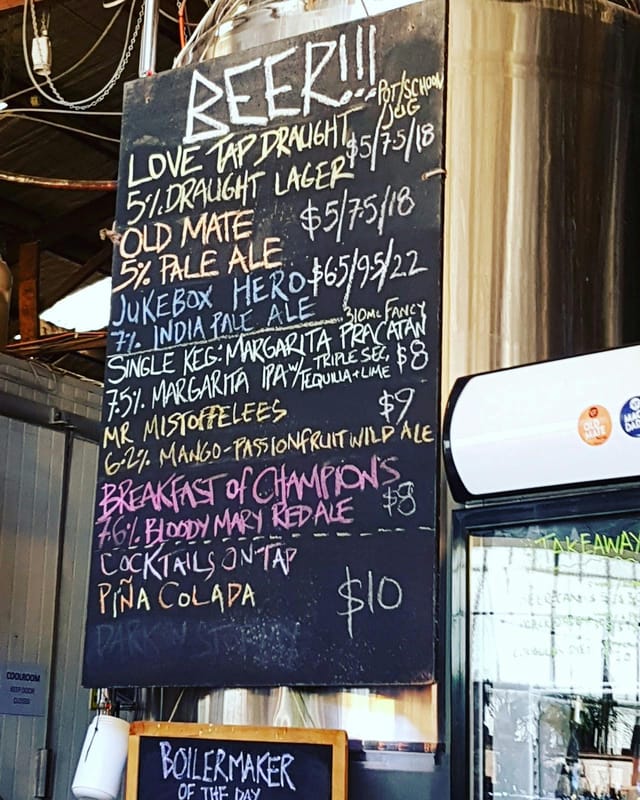 BEER!!!
POT/SCHOON
/JUG
LOVE TAP DRAUGHT
5% DRAUGHT LAGER $5/7.5/18
OLD MATE
5% PALE ALE $5/7.5/18
JUKEBOX HERO $6.5/9.5/22
7% INDIA PALE ALE
310ML FANCY
SINGLE KEG: MARGARITA PRACATAN
7.5% MARGARITA IPA W/ TRIPLE SEC, $8
TEQUILA + LIME
MR MISTOFFELEES $9
6.2% MANGO-PASSIONFRUIT WILD ALE
BREAKFAST of CHAMPIONS
7.6% BLOODY MARY RED ALE $8
COCKTAILS ON TAP
PIÑA COLADA $10
DARK N STORMY
BOILERMAKER
OF THE DAY
COOLROOM
KEEP DOOR
CLOSED
OLD
MATE
TAKEAWAY